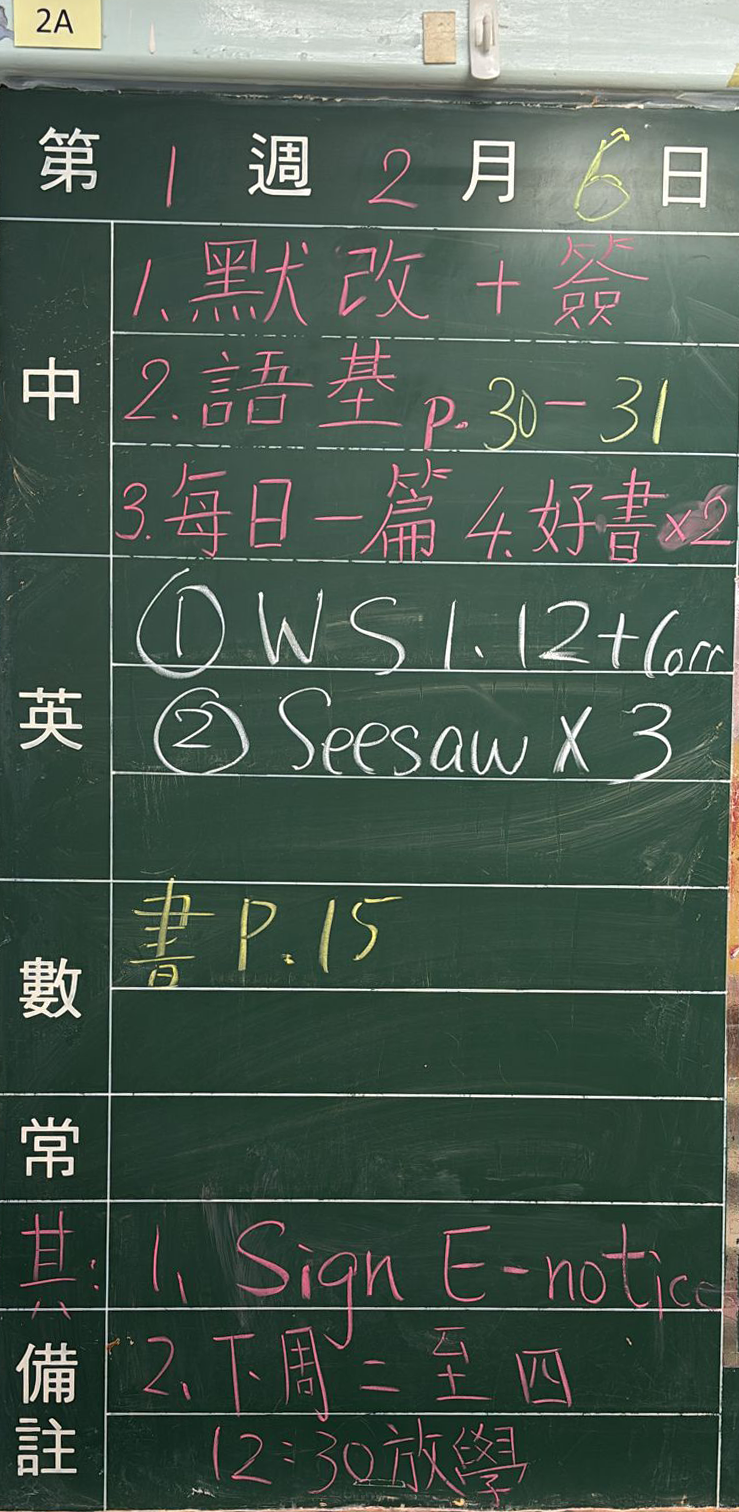 2A
第 1 週 2 月 6 日
中
1. 默改 + 簽
2. 語基 p. 30-31
3. 每日一篇 4. 好書 x2
英
① WS 1.12 + Corr
② Seesaw X 3
數
書 P.15
常
其: 1. Sign E-notice
備註
2. 下周二至四
12:30放學